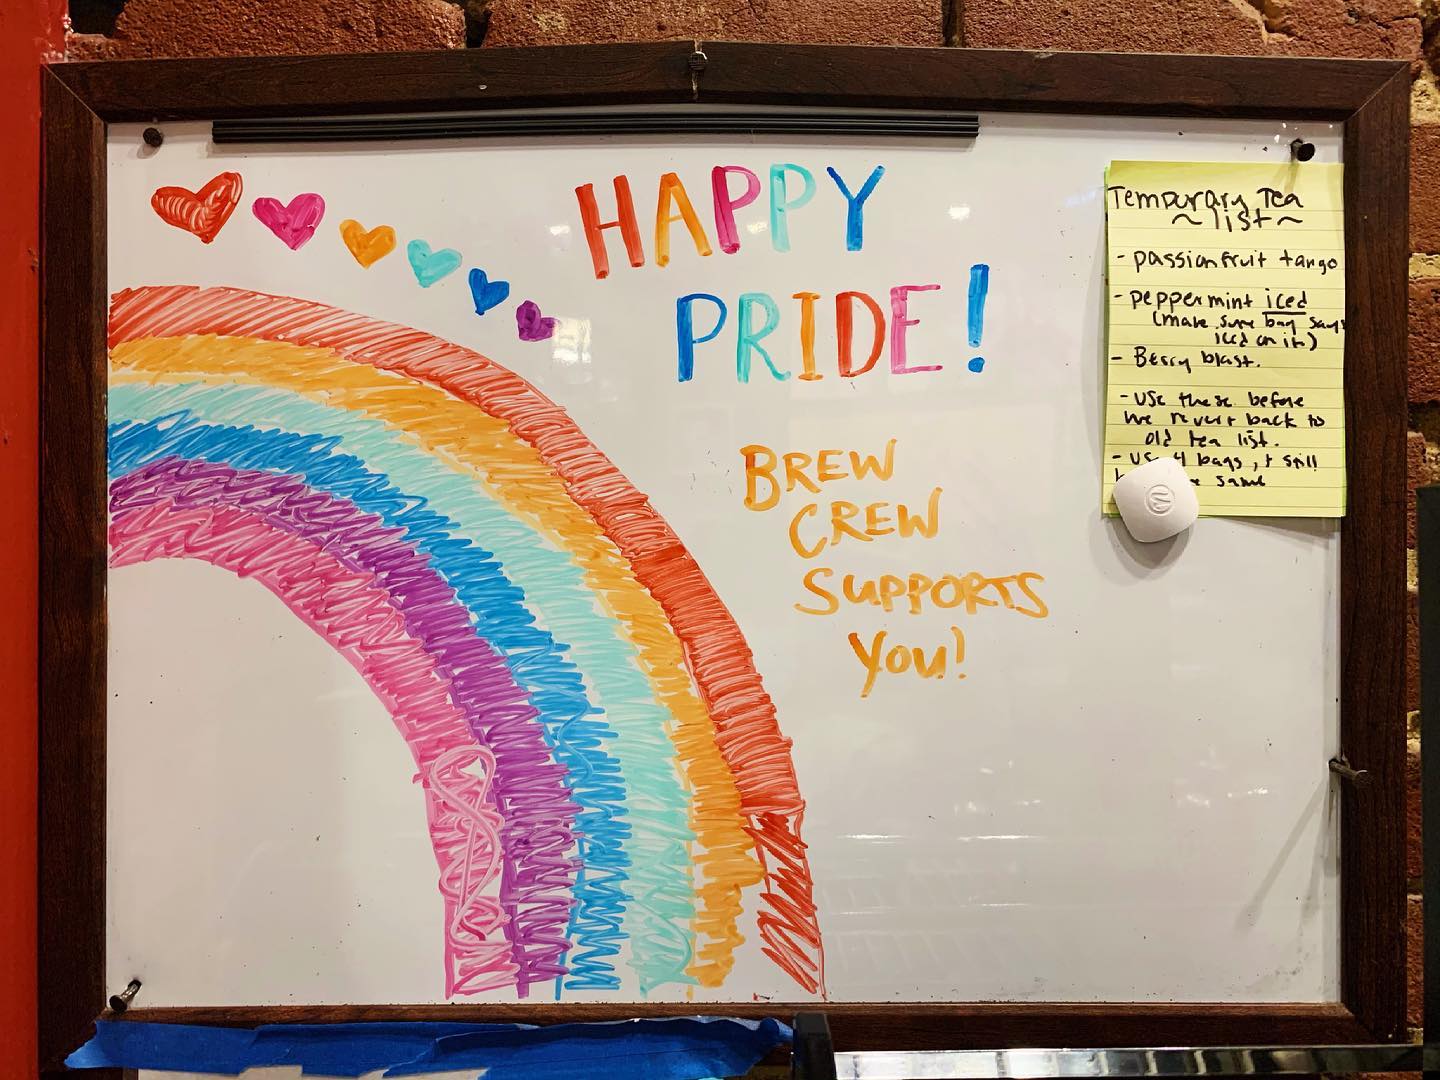 HAPPY
PRIDE!
BREW
CREW
SUPPORTS
You!
Temporary Tea
~ list ~
- passionfruit tango
- peppermint iced
(make sure bag says
iced on it)
- Berry blast.
- Use these before
we revert back to
old tea list.
- Use 4 bags, + still
same